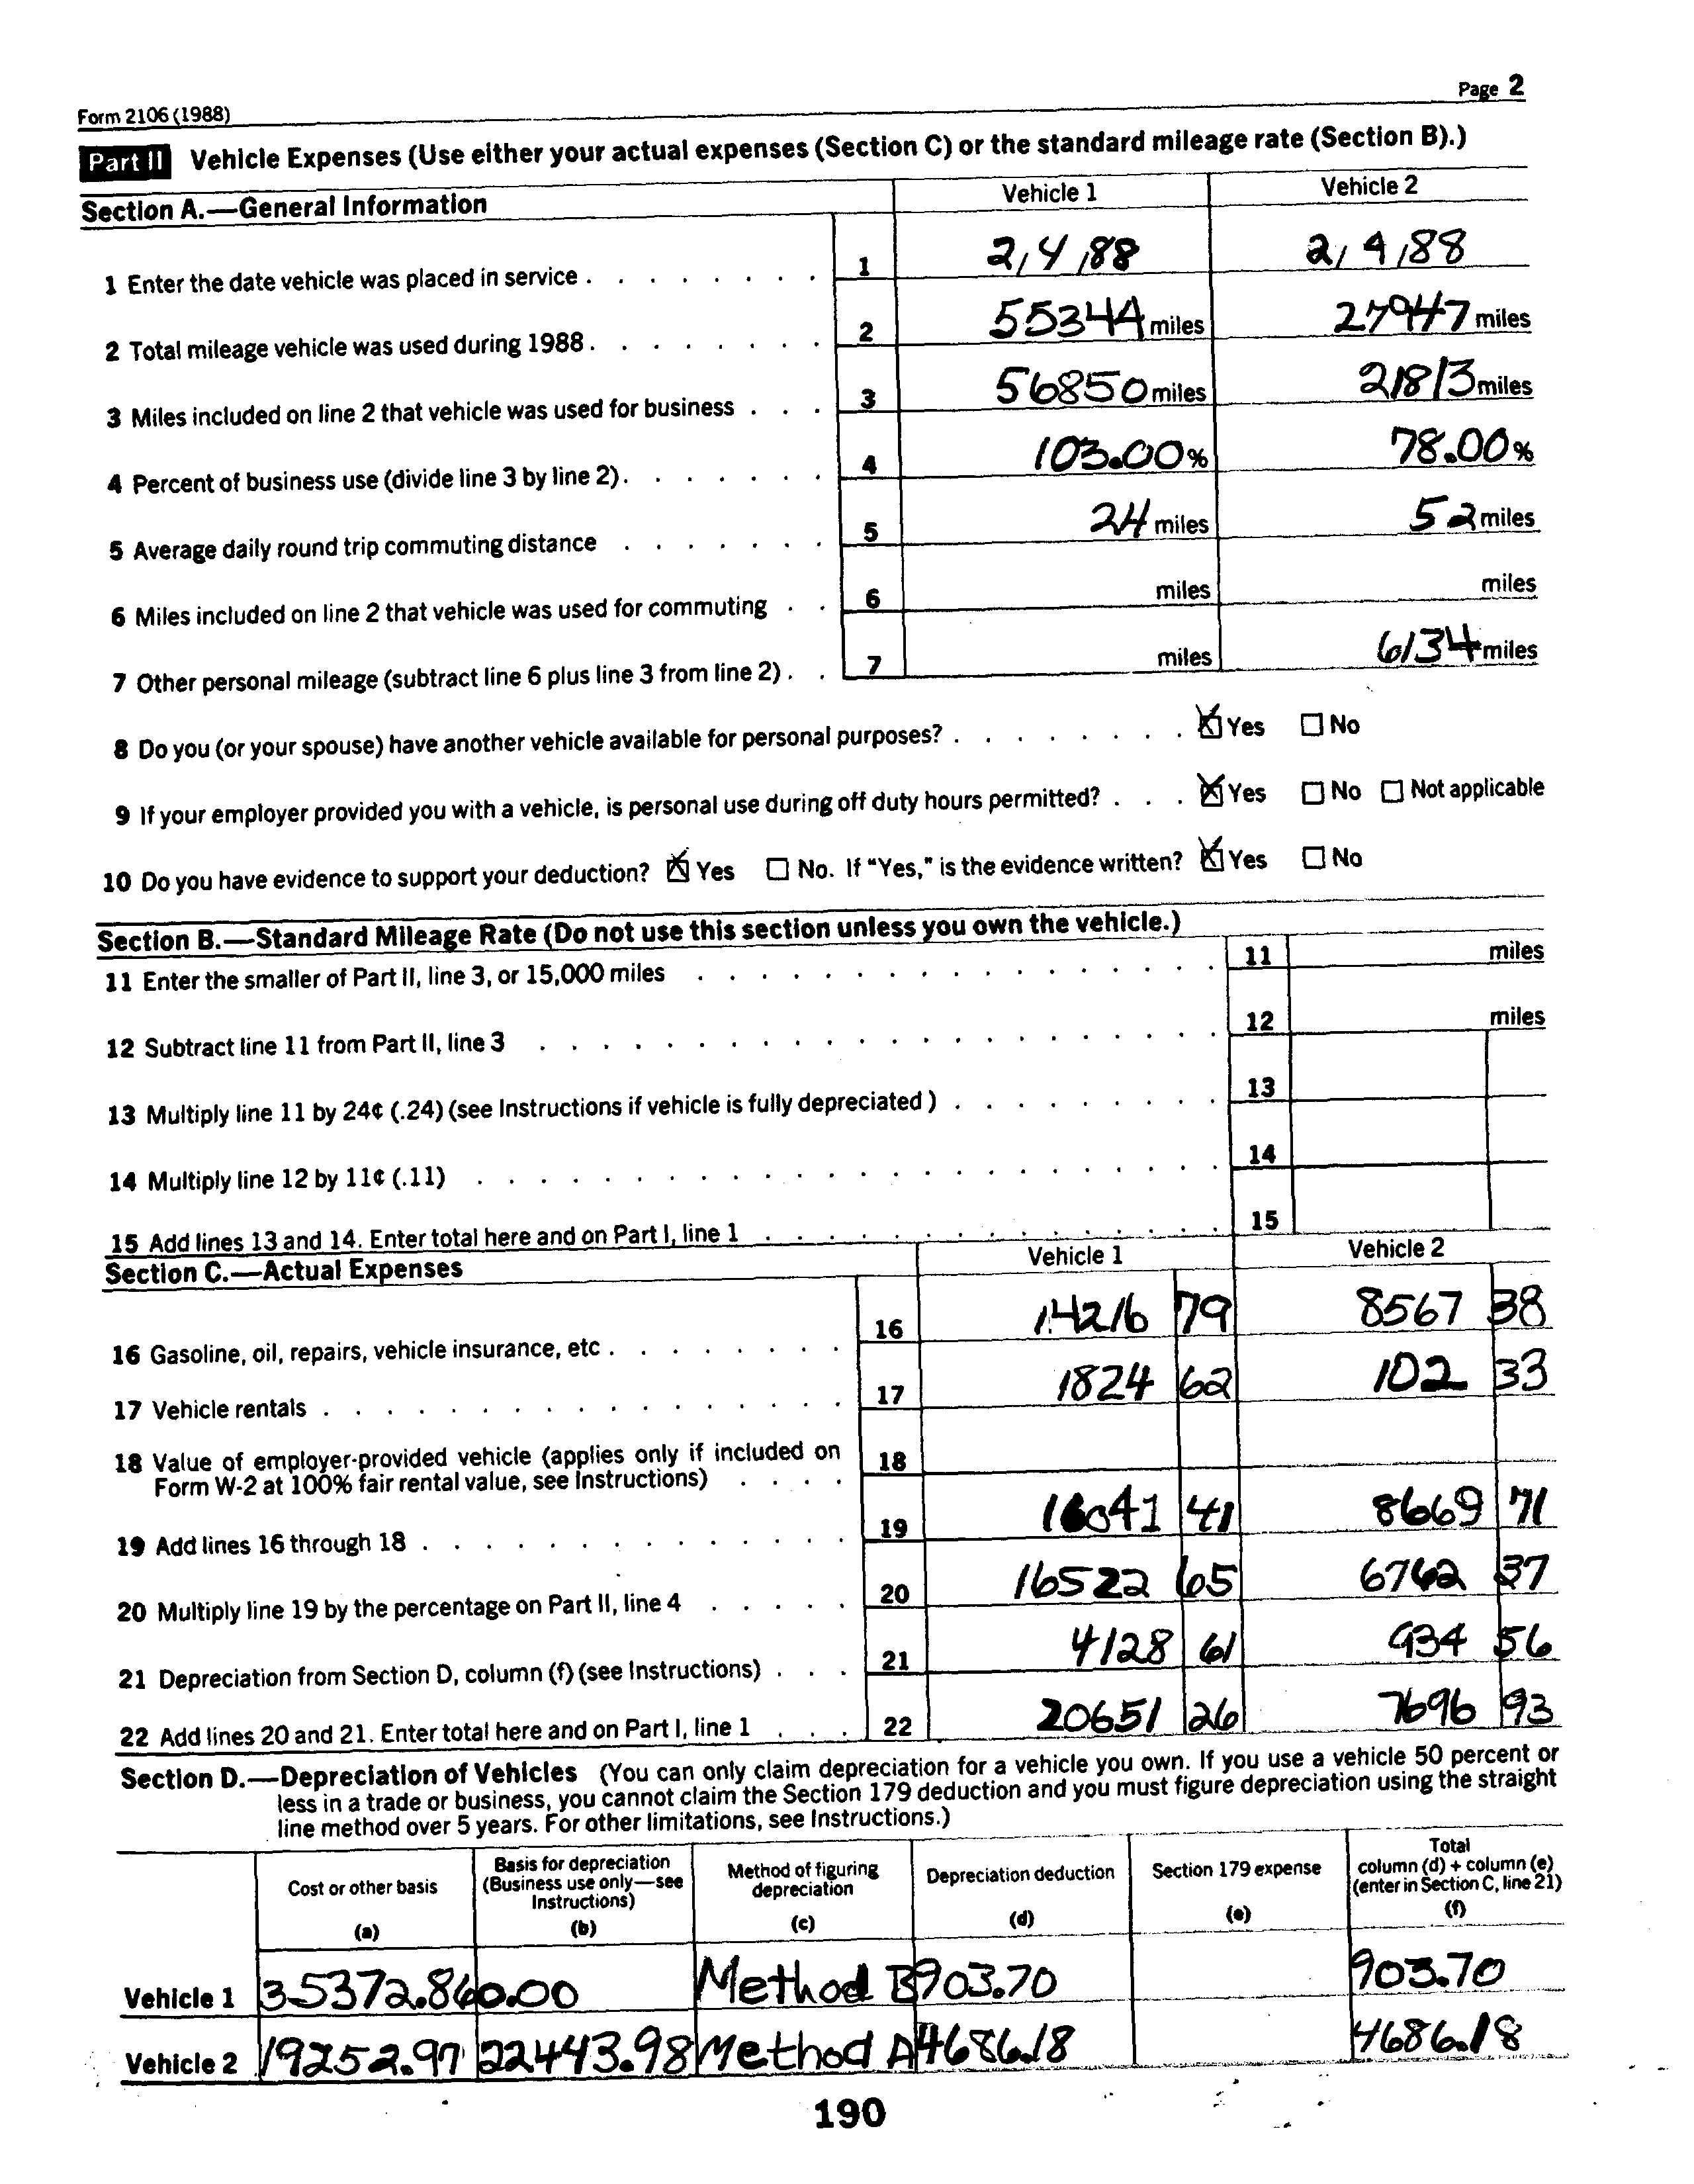 Form 2106 (1988) Page 2
Part II Vehicle Expenses (Use either your actual expenses (Section C) or the standard mileage rate (Section B).)
Section A.—General Information Vehicle 1 Vehicle 2
1 Enter the date vehicle was placed in service . . . . . . . . 1 2/4/88 2/4/88
2 Total mileage vehicle was used during 1988 . . . . . . . . 2 55344 miles 27947 miles
3 Miles included on line 2 that vehicle was used for business . . . 3 56850 miles 21813 miles
4 Percent of business use (divide line 3 by line 2) . . . . . . . 4 103.00 % 78.00 %
5 Average daily round trip commuting distance . . . . . . . 5 24 miles 52 miles
6 Miles included on line 2 that vehicle was used for commuting . . 6 miles miles
7 Other personal mileage (subtract line 6 plus line 3 from line 2) . . 7 miles 6134 miles
8 Do you (or your spouse) have another vehicle available for personal purposes? . . . . . . . . ☒ Yes ☐ No
9 If your employer provided you with a vehicle, is personal use during off duty hours permitted? . . . ☒ Yes ☐ No ☐ Not applicable
10 Do you have evidence to support your deduction? ☒ Yes ☐ No. If "Yes," is the evidence written? ☒ Yes ☐ No
Section B.—Standard Mileage Rate (Do not use this section unless you own the vehicle.)
11 Enter the smaller of Part II, line 3, or 15,000 miles . . . . . . . . . . . . . . . . . 11 miles
12 Subtract line 11 from Part II, line 3 . . . . . . . . . . . . . . . . . . . . . . 12 miles
13 Multiply line 11 by 24¢ (.24) (see Instructions if vehicle is fully depreciated ) . . . . . . . . . 13
14 Multiply line 12 by 11¢ (.11) . . . . . . . . . . . . . . . . . . . . . . . . 14
15 Add lines 13 and 14. Enter total here and on Part I, line 1 . . . . . . . . . . . . . . . 15
Section C.—Actual Expenses Vehicle 1 Vehicle 2
16 Gasoline, oil, repairs, vehicle insurance, etc . . . . . . . . 16 14216 79 8567 38
17 Vehicle rentals . . . . . . . . . . . . . . . . . 17 1824 62 102 33
18 Value of employer-provided vehicle (applies only if included on 18
Form W-2 at 100% fair rental value, see Instructions) . . . .
19 Add lines 16 through 18 . . . . . . . . . . . . . . 19 16041 41 8669 71
20 Multiply line 19 by the percentage on Part II, line 4 . . . . . 20 16522 65 6762 37
21 Depreciation from Section D, column (f) (see Instructions) . . . 21 4128 61 934 56
22 Add lines 20 and 21. Enter total here and on Part I, line 1 . . . 22 20651 26 7696 93
Section D.—Depreciation of Vehicles (You can only claim depreciation for a vehicle you own. If you use a vehicle 50 percent or
less in a trade or business, you cannot claim the Section 179 deduction and you must figure depreciation using the straight
line method over 5 years. For other limitations, see Instructions.)
Cost or other basis (a) Basis for depreciation (Business use only—see Instructions) (b) Method of figuring depreciation (c) Depreciation deduction (d) Section 179 expense (e) Total column (d) + column (e) (enter in Section C, line 21) (f)
Vehicle 1 35372.86 0.00 Method B 903.70 903.70
Vehicle 2 19252.97 22443.98 Method A 4686.18 4686.18
190